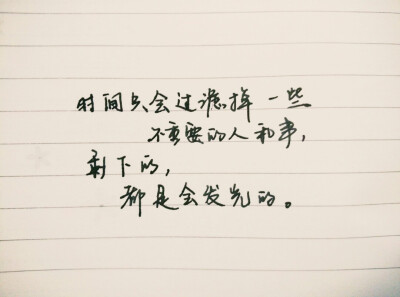 时间只会过滤掉一些
不重要的人和事,
剩下的,
都是会发光的。